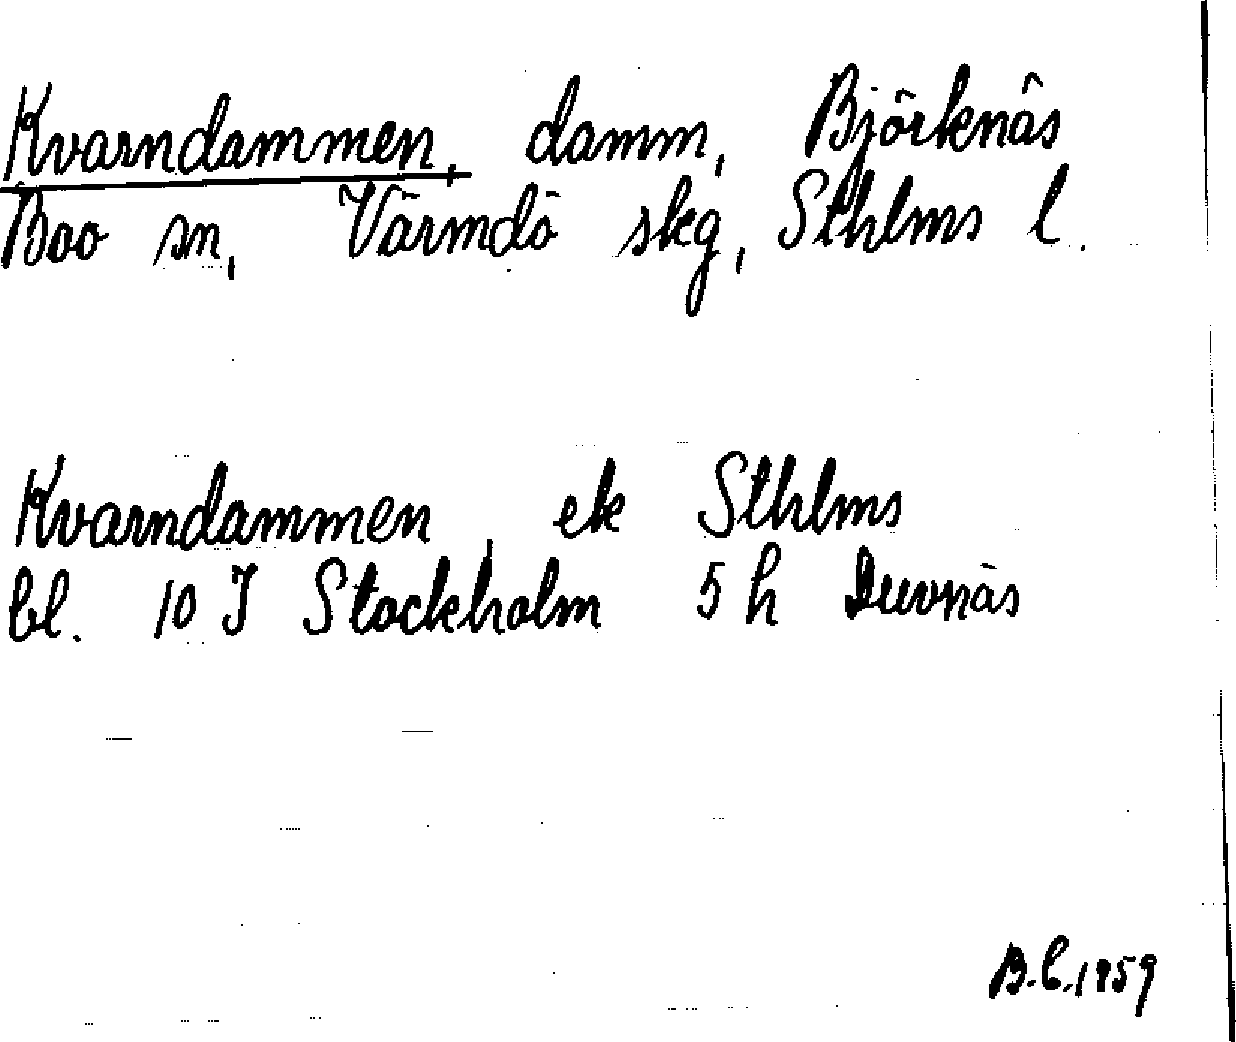 Kvarndammen, damm, Björknäs
Boo sn, Värmdö skg, Sthlms l.
Kvarndammen, ek Sthlms
bl. 10 I Stockholm 5 h Duvnäs
B.C. 1959